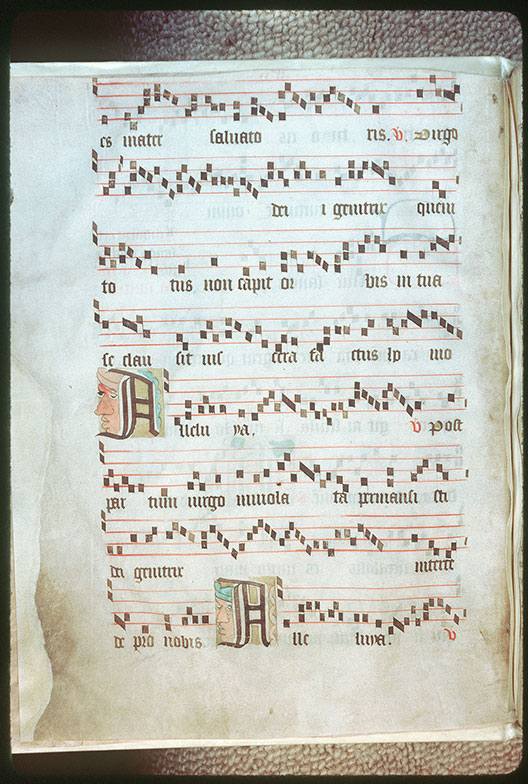 es mater saluato ris. v. Virgo
dei i genitrix quem
to tus non capit or bis in tua
se clau sit uis cera fa ctus ho mo
Alleluya v Post
par tum uirgo inuiola ta permansi sti
dei genitrix intere
de pro nobis. Alle luya. v